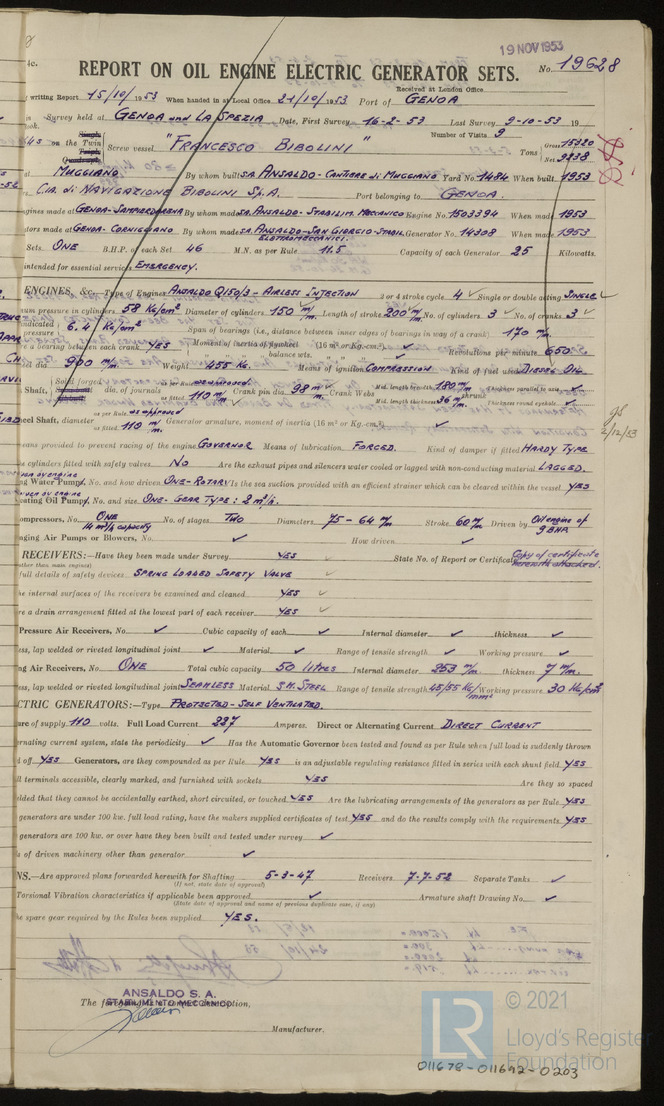 19 NOV 1953
4c.
REPORT ON OIL ENGINE ELECTRIC GENERATOR SETS.
No. 19628
Received at London Office
writing Report 15/10/1953 When handed in at Local Office 21/10/1953 Port of GENOA
Survey held at GENOA and LA SPEZIA Date, First Survey 16-2-53 Last Survey 9-10-53 19
Number of Visits 9
on the Twin Screw vessel "FRANCESCO BIBOLINI" Tons Gross 15320 Net 9238
at MUGGIANO By whom built SA. ANSALDO-CANTIERE di MUGGIANO Yard No. 1484 When built 1953
C.IA. di NAVIGAZIONE BIBOLINI S.p.A. Port belonging to GENOA.
gines made at GENOA-SAMPIERDARENA By whom made SA. ANSALDO-STABILIM. MECCANICO Engine No. 1503394 When made 1953
ators made at GENOA-CORNIGLIANO By whom made SA. ANSALDO-SAN GIORGIO-STABIL. ELETTROMECCANICI. Generator No. 14308 When made 1953
Sets. ONE B.H.P. of each Set 46 M.N. as per Rule 11.5 Capacity of each Generator 25 Kilowatts.
intended for essential services EMERGENCY.
ENGINES, &c.—Type of Engines ANSALDO Q150/3 - AIRLESS INJECTION 2 or 4 stroke cycle 4 Single or double acting SINGLE
um pressure in cylinders 58 Kg/cm² Diameter of cylinders 150 m/m. Length of stroke 200 m/m. No. of cylinders 3 No. of cranks 3
indicated pressure 6.4 Kg/cm² Span of bearings (i.e., distance between inner edges of bearings in way of a crank) 170 m/m
a bearing between each crank YES Moment of inertia of flywheel (16 m² or Kg.-cm².) balance wts. Revolutions per minute 650
dia 900 m/m Weight 455 Kg. Means of ignition COMPRESSION Kind of fuel used DIESEL OIL
Shaft, dia. of journals as per Rule as approved as fitted 110 m/m Crank pin dia 98 m/m Crank Webs Mid. length breadth 180 m/m Mid. length thickness 36 m/m shrunk Thickness parallel to axis Thickness round eyehole
eel Shaft, diameter as per Rule as approved as fitted 110 m/m Generator armature, moment of inertia (16 m² or Kg.-cm².)
eans provided to prevent racing of the engine GOVERNOR Means of lubrication FORCED. Kind of damper if fitted HARDY TYPE
e cylinders fitted with safety valves NO Are the exhaust pipes and silencers water cooled or lagged with non-conducting material LAGGED.
ng Water Pumps, No. and how driven ONE-ROTARY Is the sea suction provided with an efficient strainer which can be cleared within the vessel YES
cating Oil Pumps, No. and size ONE-GEAR TYPE: 2 m³/h.
ompressors, No. ONE 14 m³/h capacity No. of stages TWO Diameters 75 - 64 m/m Stroke 60 m/m Driven by Oil engine of 9 BHP.
nging Air Pumps or Blowers, No. How driven
RECEIVERS:—Have they been made under Survey YES State No. of Report or Certificate Copy of certificate herewith attached.
(other than main engine)
full details of safety devices SPRING LOADED SAFETY VALVE
he internal surfaces of the receivers be examined and cleaned YES
ere a drain arrangement fitted at the lowest part of each receiver YES
Pressure Air Receivers, No. Cubic capacity of each Internal diameter thickness
ess, lap welded or riveted longitudinal joint Material Range of tensile strength Working pressure
ng Air Receivers, No. ONE Total cubic capacity 50 litres Internal diameter 253 m/m. thickness 7 m/m.
ess, lap welded or riveted longitudinal joint SEAMLESS Material S.M. STEEL Range of tensile strength 45/55 Kg/mm² Working pressure 30 Kg/cm²
CTRIC GENERATORS:—Type PROTECTED-SELF VENTILATED.
ure of supply 110 volts. Full Load Current 227 Amperes. Direct or Alternating Current DIRECT CURRENT
ernating current system, state the periodicity Has the Automatic Governor been tested and found as per Rule when full load is suddenly thrown
d off YES Generators, are they compounded as per Rule YES is an adjustable regulating resistance fitted in series with each shunt field YES
ll terminals accessible, clearly marked, and furnished with sockets YES Are they so spaced
elded that they cannot be accidentally earthed, short circuited, or touched YES Are the lubricating arrangements of the generators as per Rule YES
generators are under 100 kw. full load rating, have the makers supplied certificates of test YES and do the results comply with the requirements YES
generators are 100 kw. or over have they been built and tested under survey
ls of driven machinery other than generator
NS.—Are approved plans forwarded herewith for Shafting 5-3-47 Receivers 7-7-52 Separate Tanks
(If not, state date of approval)
Torsional Vibration characteristics if applicable been approved Armature shaft Drawing No.
(State date of approval and name of previous duplicate case, if any)
he spare gear required by the Rules been supplied YES.
ANSALDO S. A.
STABILIMENTO MECCANICO
The foregoing is a correct description,
Manufacturer.
LR © 2021
Lloyd's Register
Foundation
011678-011692-0203